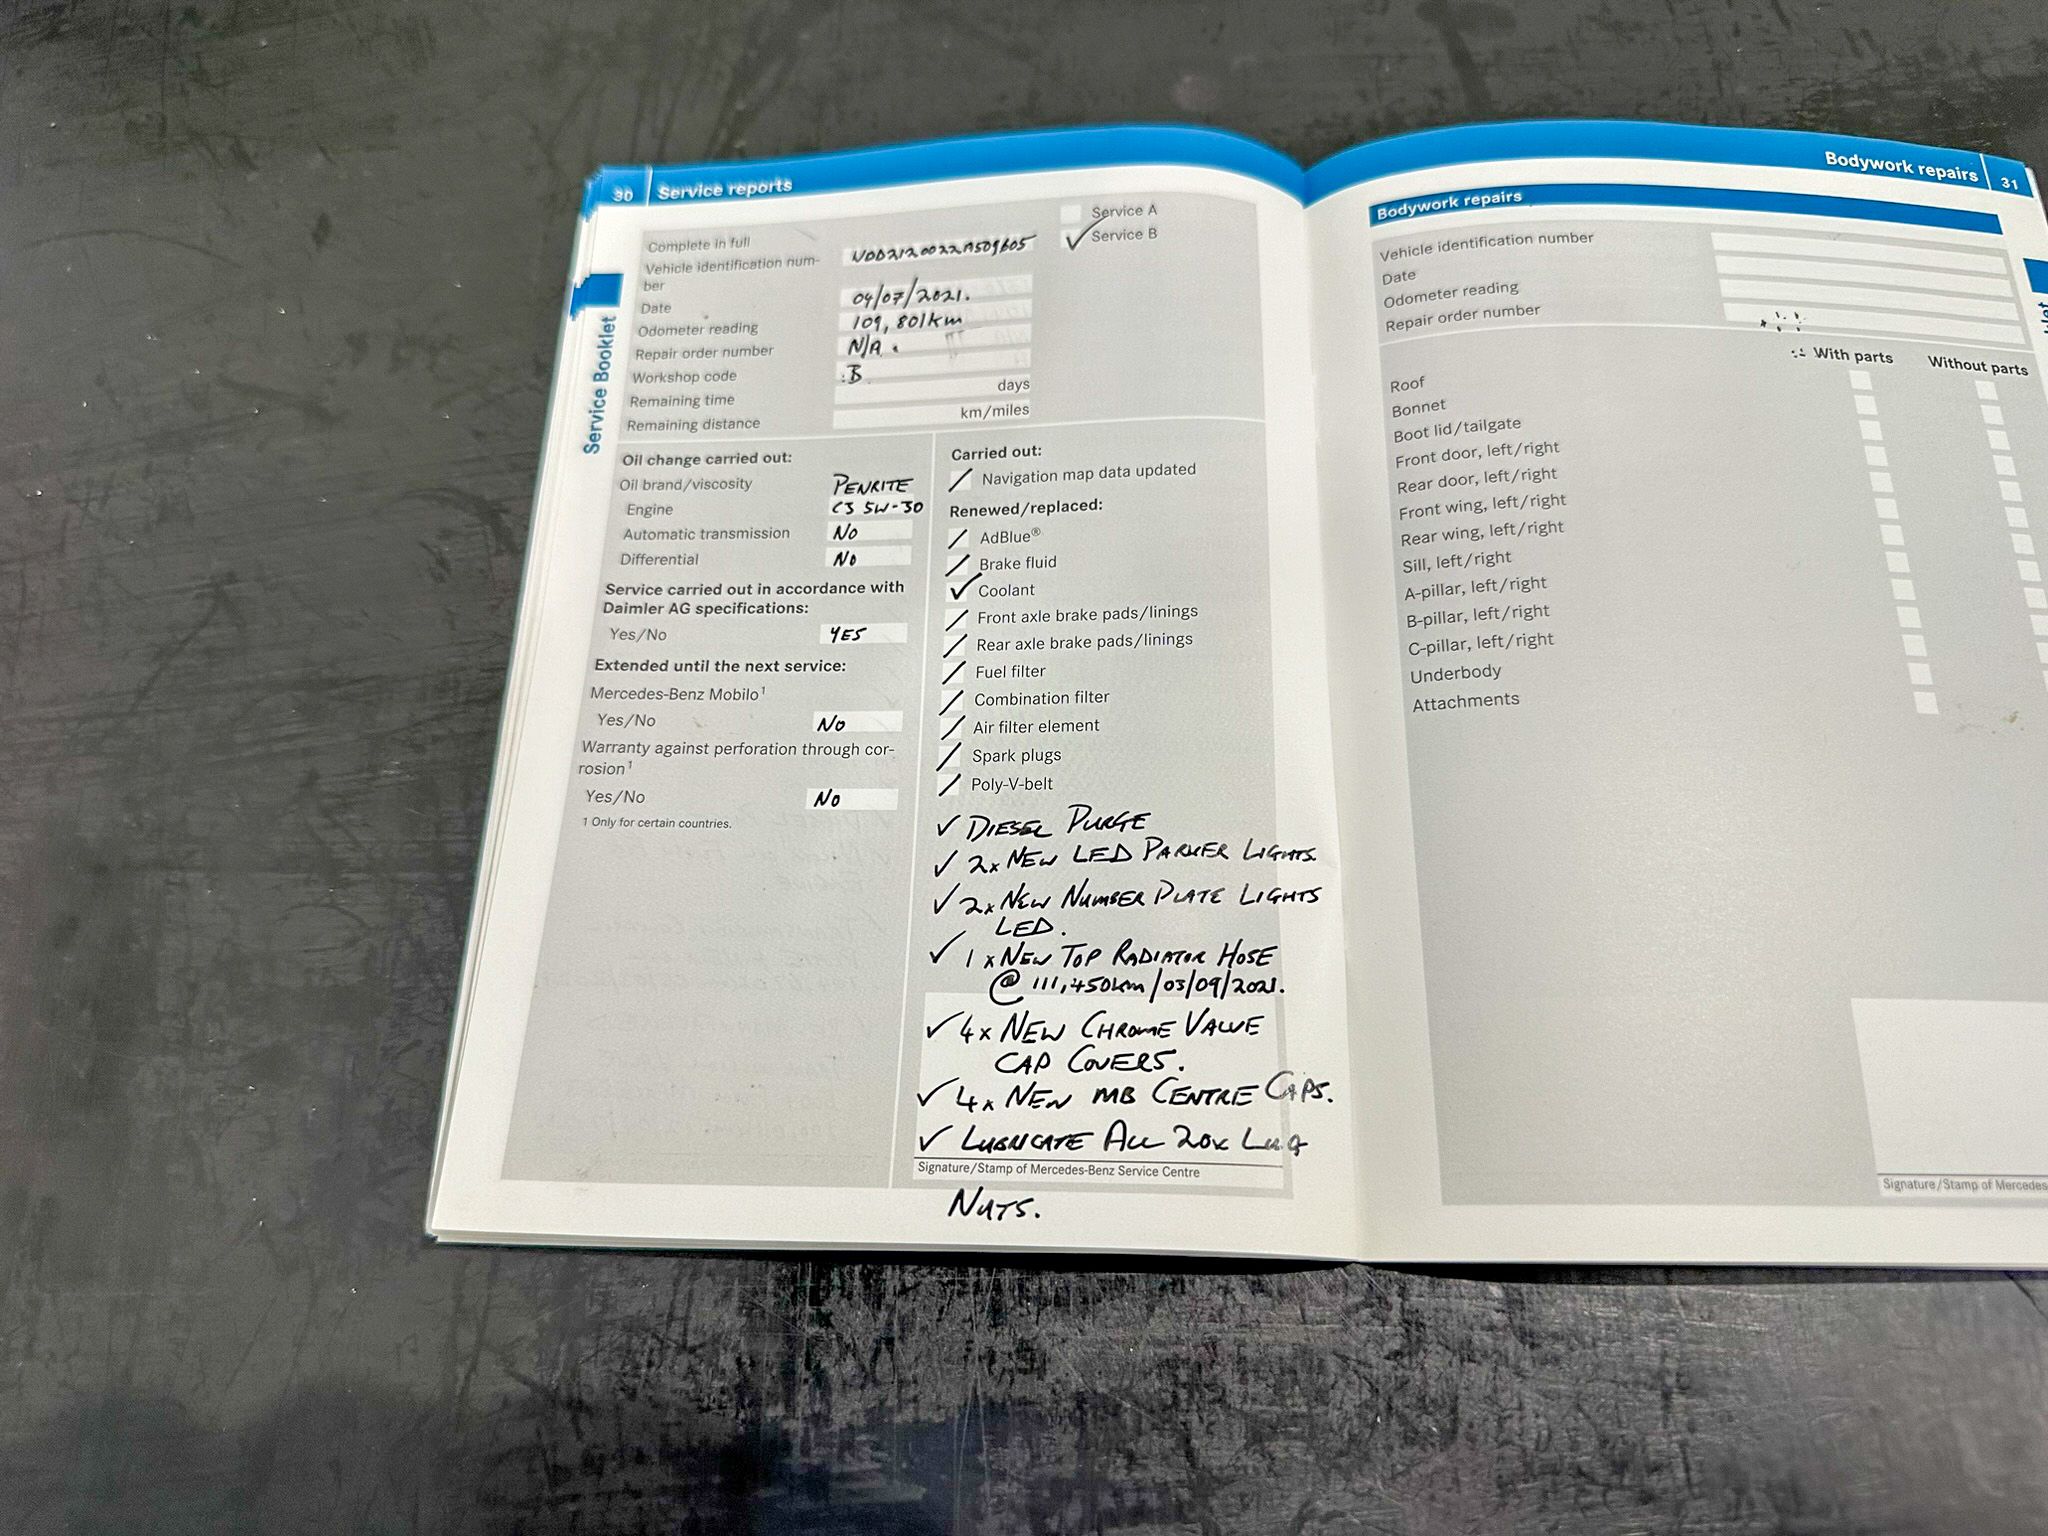 30 Service reports
Complete in full
Service A
✓ Service B
Vehicle identification num-
ber
WDD2120022A509605
Date 04/07/2021.
Odometer reading 109,801km
Repair order number N/A.
Workshop code B
Remaining time days
Remaining distance km/miles
Service Booklet
Oil change carried out:
Oil brand/viscosity PENRITE
Engine C3 5W-30
Automatic transmission No
Differential No
Service carried out in accordance with
Daimler AG specifications:
Yes/No YES
Extended until the next service:
Mercedes-Benz Mobilo¹
Yes/No No
Warranty against perforation through cor-
rosion¹
Yes/No No
1 Only for certain countries.
Carried out:
/ Navigation map data updated
Renewed/replaced:
/ AdBlue®
/ Brake fluid
✓ Coolant
/ Front axle brake pads/linings
/ Rear axle brake pads/linings
/ Fuel filter
/ Combination filter
/ Air filter element
/ Spark plugs
/ Poly-V-belt
✓ DIESEL PURGE
✓ 2x NEW LED PARKER LIGHTS.
✓ 2x NEW NUMBER PLATE LIGHTS
LED.
✓ 1x NEW TOP RADIATOR HOSE
@ 111,450km/03/09/2021.
✓ 4x NEW CHROME VALVE
CAP COVERS.
✓ 4x NEW MB CENTRE CAPS.
✓ LUBRICATE ALL 20x LUG
Signature/Stamp of Mercedes-Benz Service Centre
NUTS.
Bodywork repairs 31
Bodywork repairs
Vehicle identification number
Date
Odometer reading
Repair order number
With parts Without parts
Roof
Bonnet
Boot lid/tailgate
Front door, left/right
Rear door, left/right
Front wing, left/right
Rear wing, left/right
Sill, left/right
A-pillar, left/right
B-pillar, left/right
C-pillar, left/right
Underbody
Attachments
Signature/Stamp of Mercedes